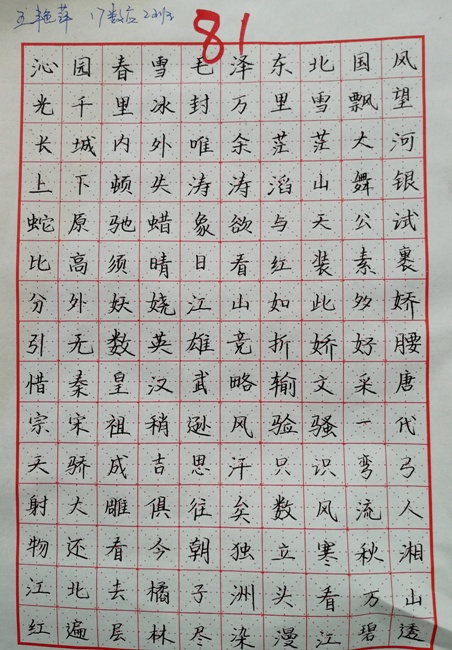 王艳萍 17数友2班
81
沁园春雪毛泽东北国风
光千里冰封万里雪飘望
长城内外唯余茫茫大河
上下顿失涛涛滔山舞银
蛇原驰蜡象欲与天公试
比高须晴日看红装素裹
分外妖娆江山如此多娇
引无数英雄竞折娇好腰
惜秦皇汉武略输文采唐
宗宋祖稍逊风验骚一代
天骄成吉思汗只识弯弓
射大雕俱往矣数风流人
物还看今朝独立寒秋湘
江北去橘子洲头看万山
红遍层林尽染漫江碧透